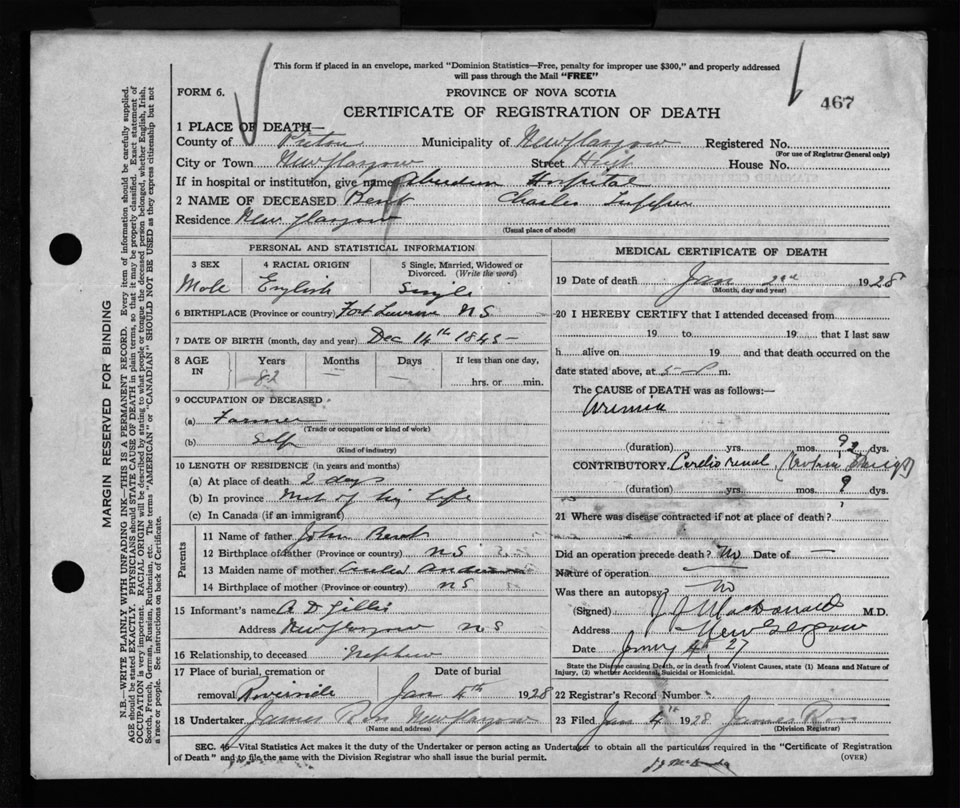 This form if placed in an envelope, marked "Dominion Statistics—Free, penalty for improper use $300," and properly addressed
will pass through the Mail "FREE"
FORM 6.
PROVINCE OF NOVA SCOTIA
467
CERTIFICATE OF REGISTRATION OF DEATH
1 PLACE OF DEATH—
County of Pictou Municipality of New Glasgow Registered No.
(For use of Registrar General only)
City or Town New Glasgow Street High House No.
If in hospital or institution, give name Aberdeen Hospital
2 NAME OF DECEASED Bent Charles Tupper
Residence New Glasgow
(Usual place of abode)
PERSONAL AND STATISTICAL INFORMATION
3 SEX 4 RACIAL ORIGIN 5 Single, Married, Widowed or Divorced. (Write the word)
Male English Single
6 BIRTHPLACE (Province or country) Fort NS
7 DATE OF BIRTH (month, day and year) Dec 14th 1845-
8 AGE IN Years Months Days If less than one day,
82 — — hrs. or min.
9 OCCUPATION OF DECEASED
(a) Farmer
(Trade or occupation or kind of work)
(b) Self
(Kind of industry)
10 LENGTH OF RESIDENCE (in years and months)
(a) At place of death 2 days
(b) In province most of his life
(c) In Canada (if an immigrant)
Parents
11 Name of father John Bent
12 Birthplace of father (Province or country) NS
13 Maiden name of mother
14 Birthplace of mother (Province or country) NS
15 Informant's name A D Gillis
Address New Glasgow NS
16 Relationship to deceased Nephew
17 Place of burial, cremation or Date of burial
removal Riverside Jan 4th 1928
18 Undertaker James Ross New Glasgow
(Name and address)
MEDICAL CERTIFICATE OF DEATH
19 Date of death Jan 2nd 1928
(Month, day and year)
20 I HEREBY CERTIFY that I attended deceased from
19 to 19 that I last saw
h alive on 19 and that death occurred on the
date stated above, at 5- P m.
The CAUSE of DEATH was as follows:—
Uremia
(duration) yrs. mos. dys.
CONTRIBUTORY. Cardio renal
(duration) yrs. mos. ? dys.
21 Where was disease contracted if not at place of death?
Did an operation precede death? No Date of —
Nature of operation
Was there an autopsy No
(Signed) J J MacDonald M.D.
Address New Glasgow
Date 27
State the Disease causing Death, or in death from Violent Causes, state (1) Means and Nature of
Injury, (2) whether Accidental, Suicidal or Homicidal.
22 Registrar's Record Number
23 Filed Jan 4th 1928 James Ross
(Division Registrar)
SEC. 46—Vital Statistics Act makes it the duty of the Undertaker or person acting as Undertaker to obtain all the particulars required in the "Certificate of Registration
of Death" and to file the same with the Division Registrar who shall issue the burial permit. (OVER)
MARGIN RESERVED FOR BINDING
N.B.—WRITE PLAINLY WITH UNFADING INK—THIS IS A PERMANENT RECORD. Every item of information should be carefully supplied.
AGE should be stated EXACTLY. PHYSICIANS should STATE CAUSE OF DEATH in plain terms, so that it may be properly classified. Exact statement of
OCCUPATION is very important. RACIAL ORIGIN will be described by stating to what people or tongue the deceased person belonged, whether English, Irish,
Scotch, French, German, Russian, Ruthenian, etc. The terms "AMERICAN" or "CANADIAN" SHOULD NOT BE USED as they express citizenship but not
a race or people. See instructions on back of Certificate.